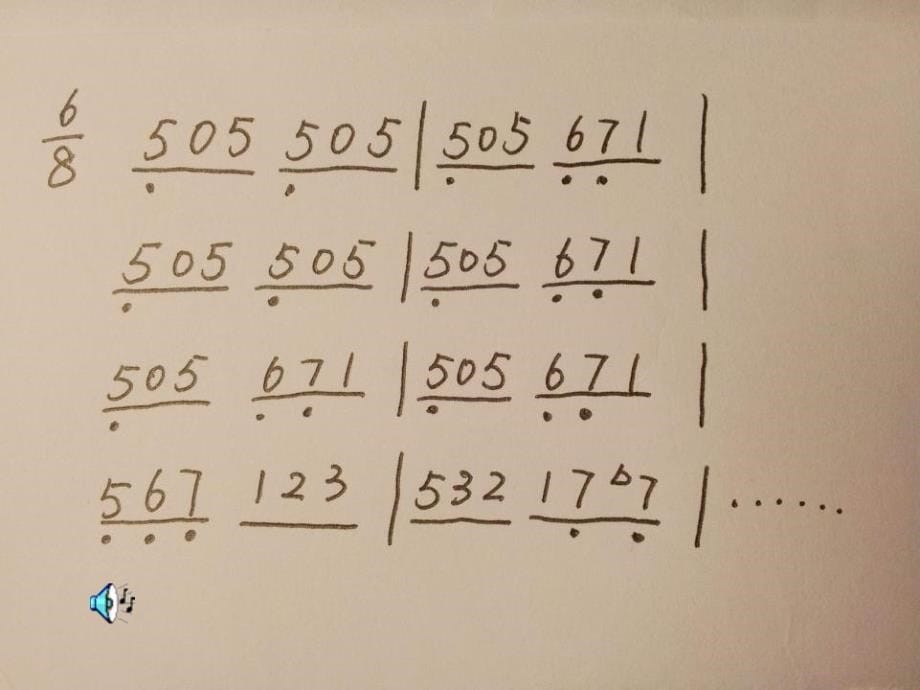 6/8 5̣05 5̣05 | 5̣05 6̣7̣1 |
5̣05 5̣05 | 5̣05 6̣7̣1 |
5̣05 6̣7̣1 | 5̣05 6̣7̣1 |
5̣6̣7̣ 123 | 532 17̣♭7̣ | ......